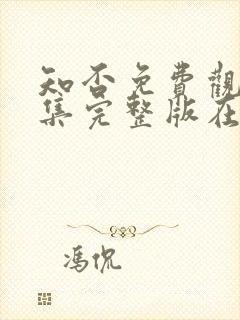 知否免費觀
集完整版在
馮侃